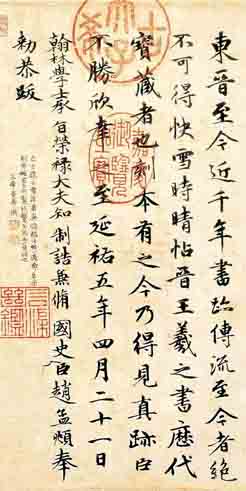 東晉至今近千年書跡傳流至今者絕
不可得快雪時晴帖晉王羲之書歷代
寶藏者也刻本有之今乃得見真跡臣
不勝欣幸之至延祐五年四月二十一日
翰林學士承旨榮祿大夫知制誥兼脩國史臣趙孟頫奉
勑恭跋
古希天子
嘉慶御覽之寶
三希堂精鑑璽